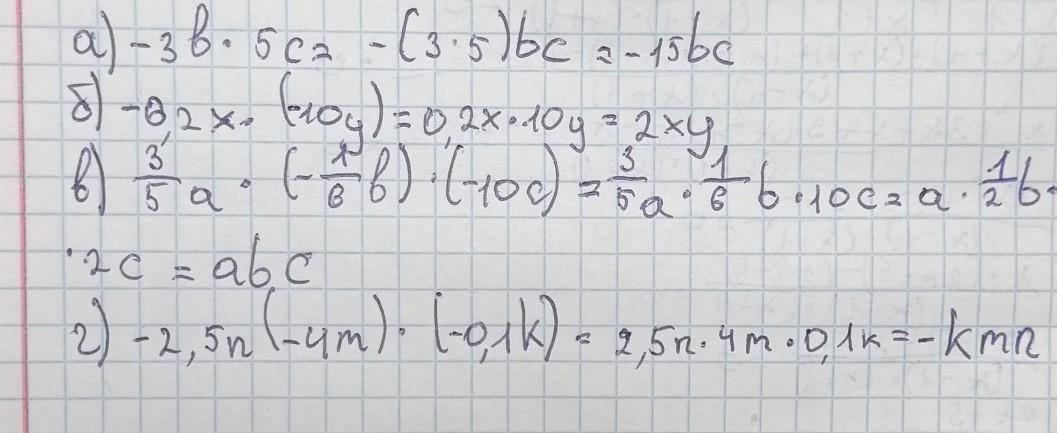 а) -3b · 5c = -(3·5)bc = -15bc
б) -0,2x · (-10y) = 0,2x · 10y = 2xy
в) 3/5 a · (-1/6 b) · (-10c) = 3/5 a · 1/6 b · 10c = a · 1/2 b ·
· 2c = abc
г) -2,5n (-4m) · (-0,1k) = 2,5n · 4m · 0,1k = -kmn